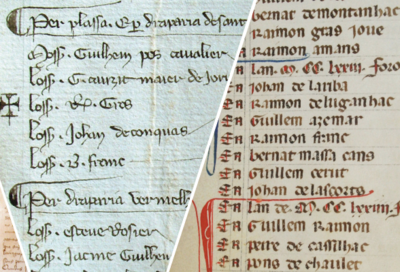 Per plassa. E per draparia de sant
Moss. Guilhem pos cavalier
Loss. G. cauzit maier de
Loss. R. Gros
Loss. Johan deconquas
Loss. B. frenc
Per draparia vermella
Loss. esteve rosier
Loss. Jacme Guilhem
bernat demontanhac
En Raimon gras jove
En Raimon amans
Lan. M. CC. lxxiii. foro
En Johan de
En Raimon deluganhac
En Guillem azemar
En Raimon frenc
En bernat massa cans
En Guillem cerut
En Johan delasports
Lan de. M. CC. lxxiiii. f
En Guillem Raimon
En peire de cassilhac
En pons de chaulet